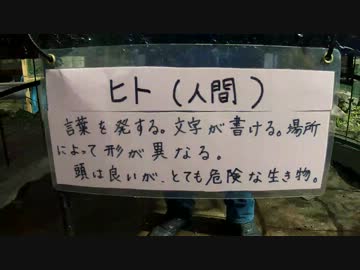 ヒト(人間)
言葉を発する。文字が書ける。場所
によって形が異なる。
頭は良いが、とても危険な生き物。